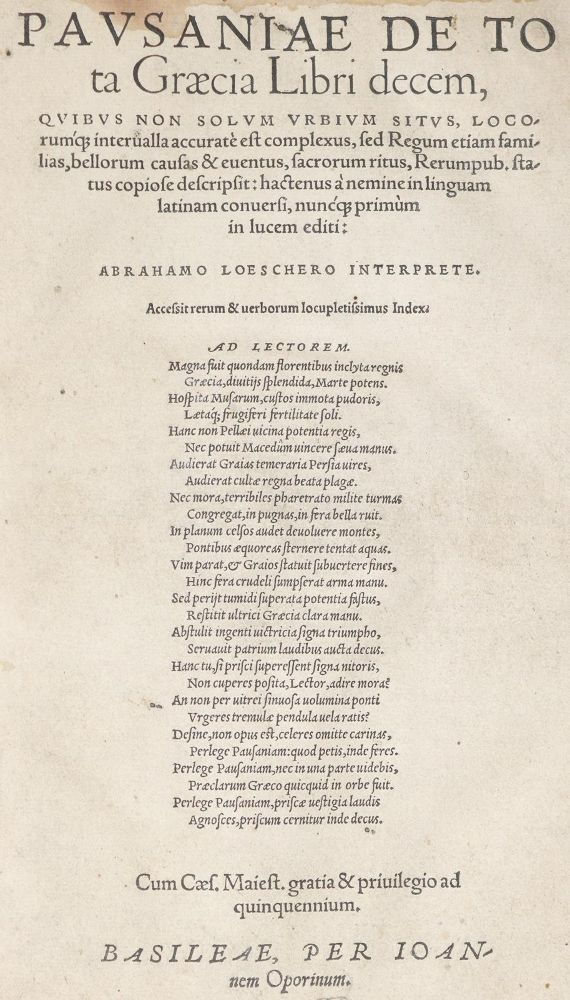 PAVSANIAE DE TO
ta Græcia Libri decem,
QVIBVS NON SOLVM VRBIVM SITVS, LOCO-
rumq́; interualla accuratè est complexus, sed Regum etiam fami-
lias, bellorum causas & euentus, sacrorum ritus, Rerumpub. sta-
tus copiose descripsit: hactenus à nemine in linguam
latinam conuersi, nuncq́; primùm
in lucem editi:
ABRAHAMO LOESCHERO INTERPRETE.
Accessit rerum & uerborum locupletissimus Index.
AD LECTOREM.
Magna fuit quondam florentibus inclyta regnis
Græcia, diuitijs splendida, Marte potens.
Hospita Musarum, custos immota pudoris,
Lætaq́; frugiferi fertilitate soli.
Hanc non Pellæi uicina potentia regis,
Nec potuit Macedûm uincere sæua manus.
Audierat Graias temeraria Persia uires,
Audierat cultæ regna beata plagæ.
Nec mora, terribiles pharetrato milite turmas
Congregat, in pugnas, in fera bella ruit.
In planum celsos audet deuoluere montes,
Pontibus æquoreas sternere tentat aquas.
Vim parat, & Graios statuit subuertere fines,
Hinc fera crudeli sumpserat arma manu.
Sed perijt tumidi superata potentia fastus,
Restitit ultrici Græcia clara manu.
Abstulit ingenti uictricia signa triumpho,
Seruauit patrium laudibus aucta decus.
Hanc tu, si prisci superessent signa nitoris,
Non cuperes posita, Lector, adire mora?
An non per uitrei sinuosa uolumina ponti
Vrgeres tremulæ pendula uela ratis?
Desine, non opus est, celeres omitte carinas,
Perlege Pausaniam: quod petis, inde feres.
Perlege Pausaniam, nec in una parte uidebis,
Præclarum Græco quicquid in orbe fuit.
Perlege Pausaniam, priscæ uestigia laudis
Agnosces, priscum cernitur inde decus.
Cum Cæs. Maiest. gratia & priuilegio ad
quinquennium.
BASILEAE, PER IOAN-
nem Oporinum.